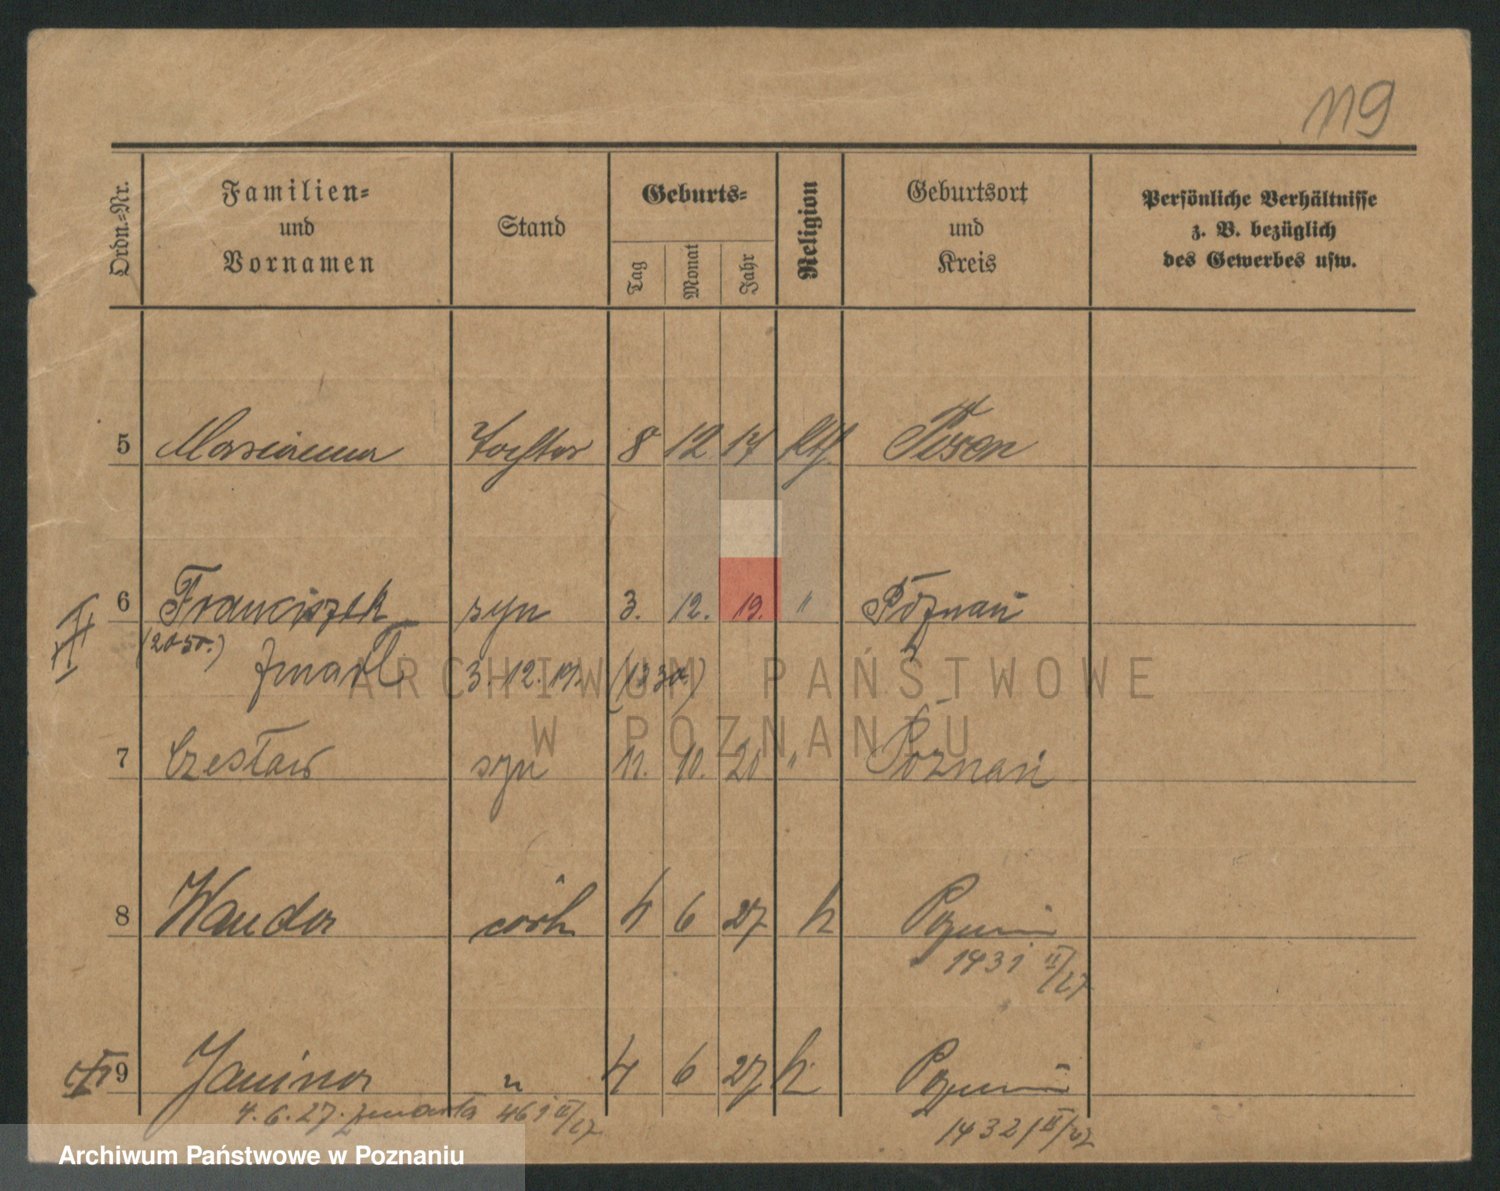 119
Ordn.-Nr.
Familien-
und
Vornamen
Stand
Geburts-
Tag
Monat
Jahr
Religion
Geburtsort
und
Kreis
Persönliche Verhältnisse
z. B. bezüglich
des Gewerbes usw.
5 Marianna Tochter 8 12 17 kth. Posen
6 Franciszek syn 3. 12. 19. " Poznań
(2050.) zmarł 3.12.19.
ARCHIWUM PAŃSTWOWE
W POZNANIU
7 Czesław syn 11. 10. 20 " Poznań
8 Wanda córk 4 6 27 k Poznań
1431 II/27
9 Janina " 4 6 27 k Poznań
4.6.27. zmarła 461 II/27 1432 II/27
Archiwum Państwowe w Poznaniu